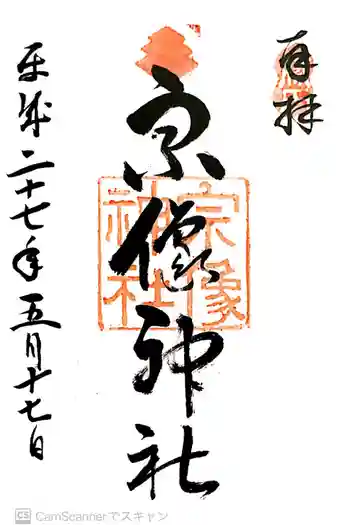 奉拝
宗像神社
宗像
神社
平成二十七年五月十七日
CS CamScannerでスキャン